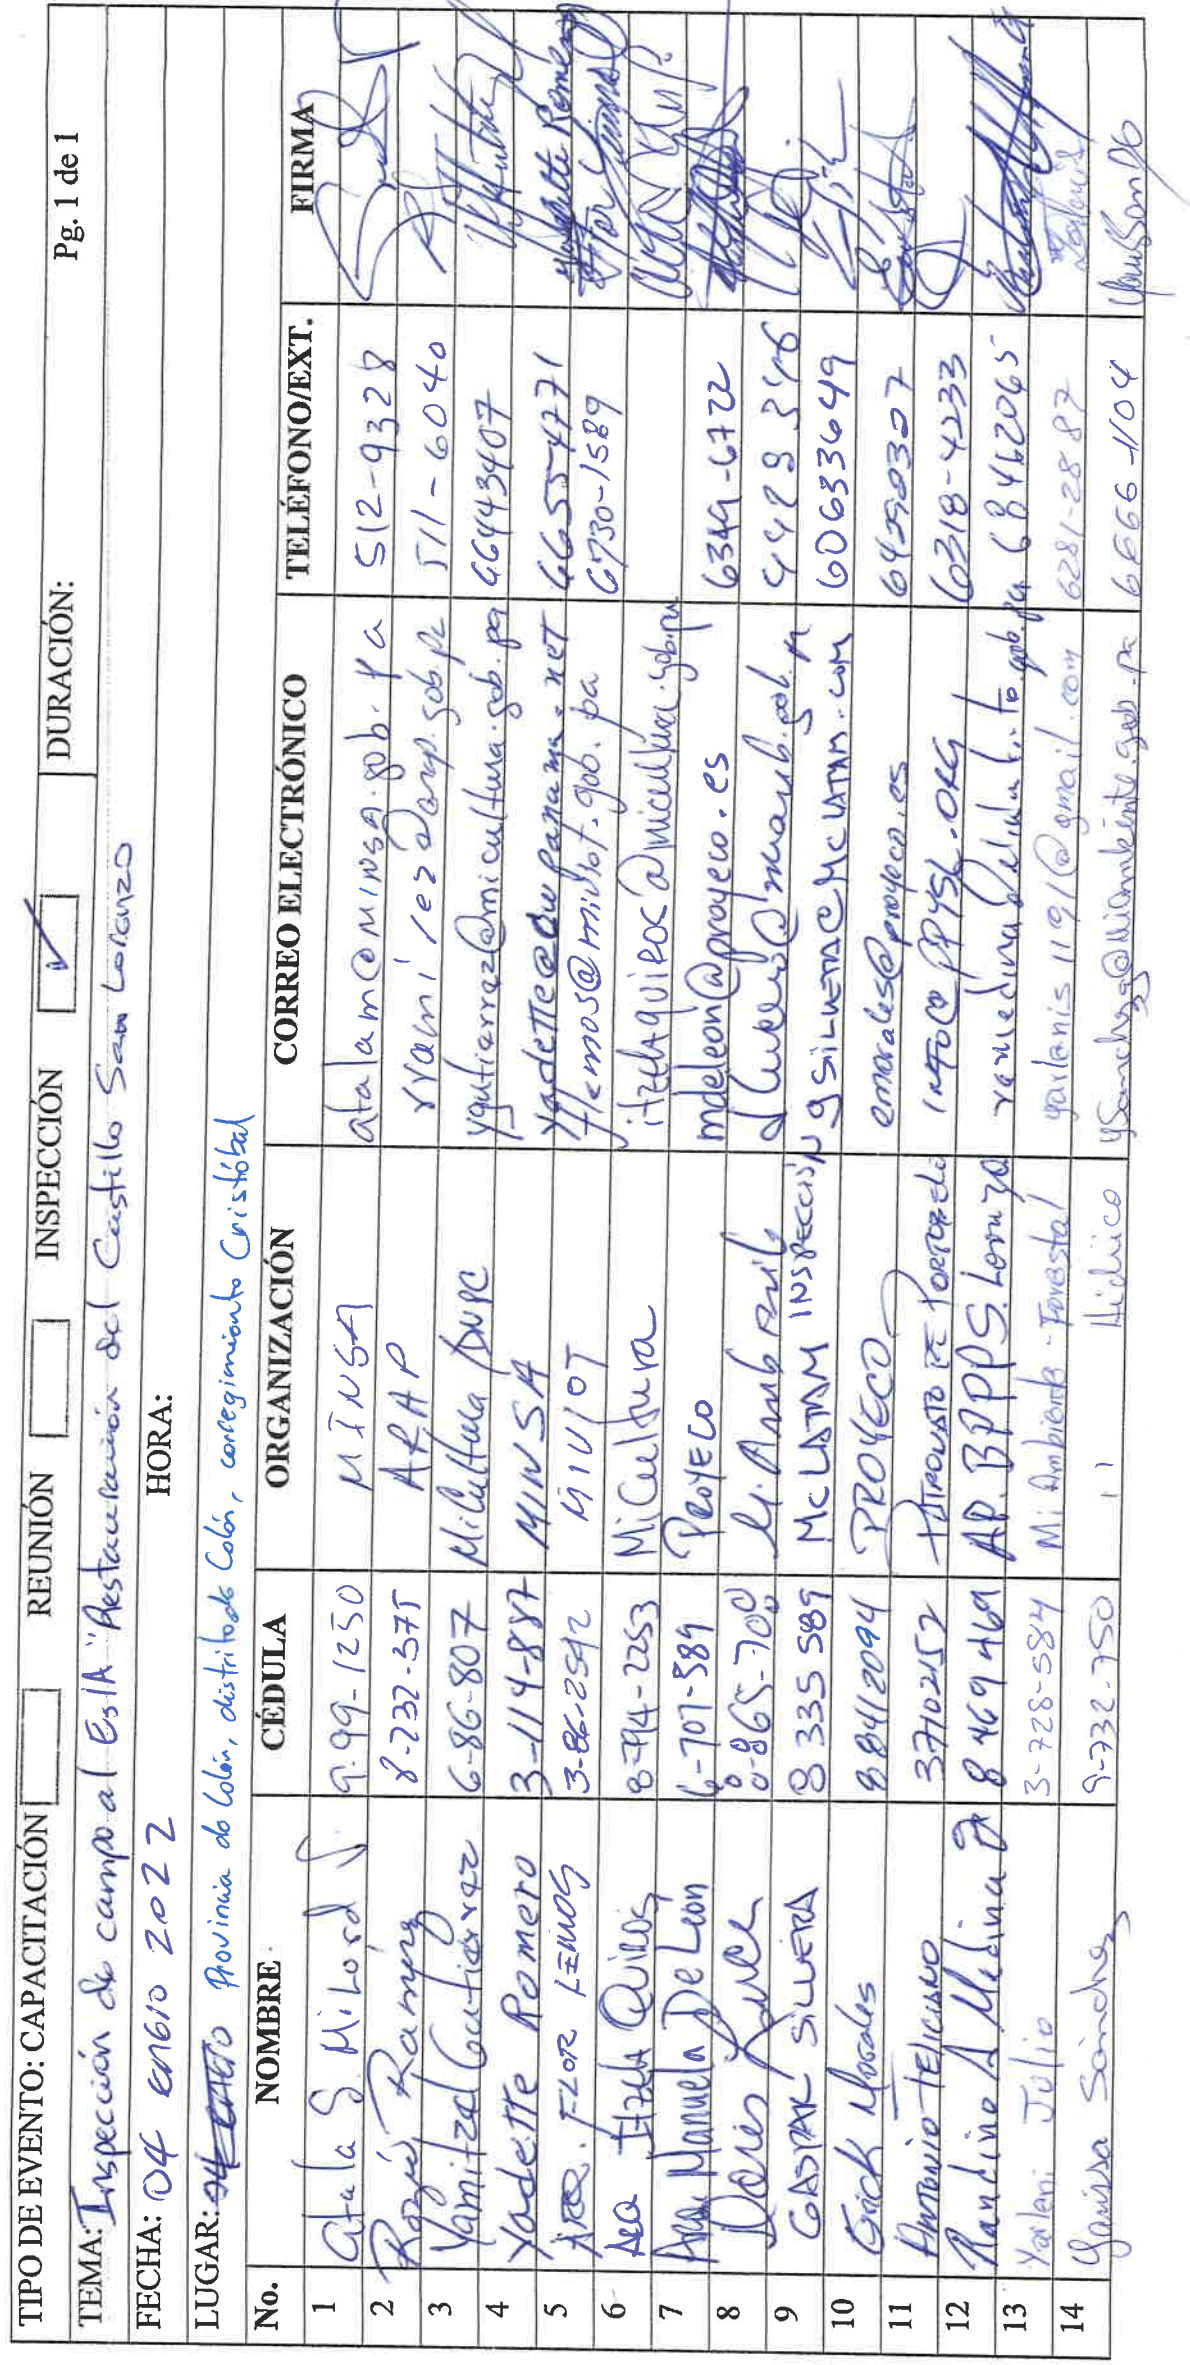 Pg. 1 de 1
TIPO DE EVENTO: CAPACITACIÓN REUNIÓN INSPECCIÓN ✓ DURACIÓN:
TEMA: Inspección de campo al EsIA "Restauración del Castillo San Lorenzo
FECHA: 04 enero 2022 HORA:
LUGAR: Provincia de Colón, distrito de Colón, corregimiento Cristóbal
No. NOMBRE CÉDULA ORGANIZACIÓN CORREO ELECTRÓNICO TELÉFONO/EXT. FIRMA
1 Atala S. Milord S. 9-99-1250 MINSA atalam@minsa.gob.pa 512-9328
2 Rozío Ramírez 8-232-375 ARAP rramirez@arap.gob.pa 511-6040
3 Yamitzel Gutiérrez 6-86-807 MiCultura/DNPC ygutierrez@micultura.gob.pa 66443407
4 Yadette Romero 3-114-887 MINSA Yadette@cwpanama.net 6655-4271 Yadette Romero
5 ARQ. FLOR LEMOS 3-86-2592 MIVIOT flemos@miviot.gob.pa 6730-1589
6 Ana Itzela Quirós 8-794-2253 MiCultura itzelaquiros@micultura.gob.pa
7 Ana Manuela De Leon 6-707-589 PROYECO mdeleon@proyeco.es 6349-6722
8 Doris 0-865-700 Mi Amb
9 GASPAR SILVERA 8 335 589 MC LATAM INSPECCIÓN gsilvera@MCLATAM.com 60633649
10 Erick Morales 88412094 PROYECO emorales@proyeco.es
11 Antonio Feliciano 37102152 PATRONATO DE PORTOBELO INFO@PPYSL.ORG 6318-4233
12 Randino A Medina 8 469 469 AP. BPPPS. Lorenzo 68462065
13 Yarleni Julio 3-728-584 MiAmbiente-Forestal yarlenis1191@gmail.com 6281-2887
14 Yanisa Sánchez 9-732-750 " Hídrico ysanchez@miambiente.gob.pa 6666-1104